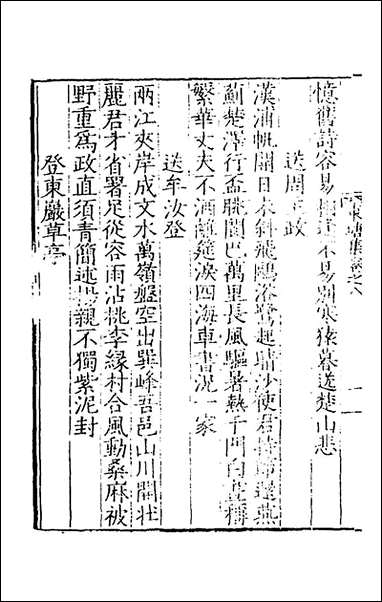 憶舊詩容易相逢不易別寒猿暮送楚山悲
送周
漢浦帆開日未斜飛鴻浴鷺趂晴沙使君持節還燕
薊楚澤行盃眺閬巴萬里長風驅暑熱千門白苧稱
繁華丈夫不洒隨筵淚四海車書混一家
送牟汝登
兩江夾岸成文水萬嶺盤空出翠峰吾邑山川開壯
麗君才省署足從容雨沾桃李緑村合風動桑麻被
野重爲政直須青簡述親不獨紫泥封
登東巖草亭